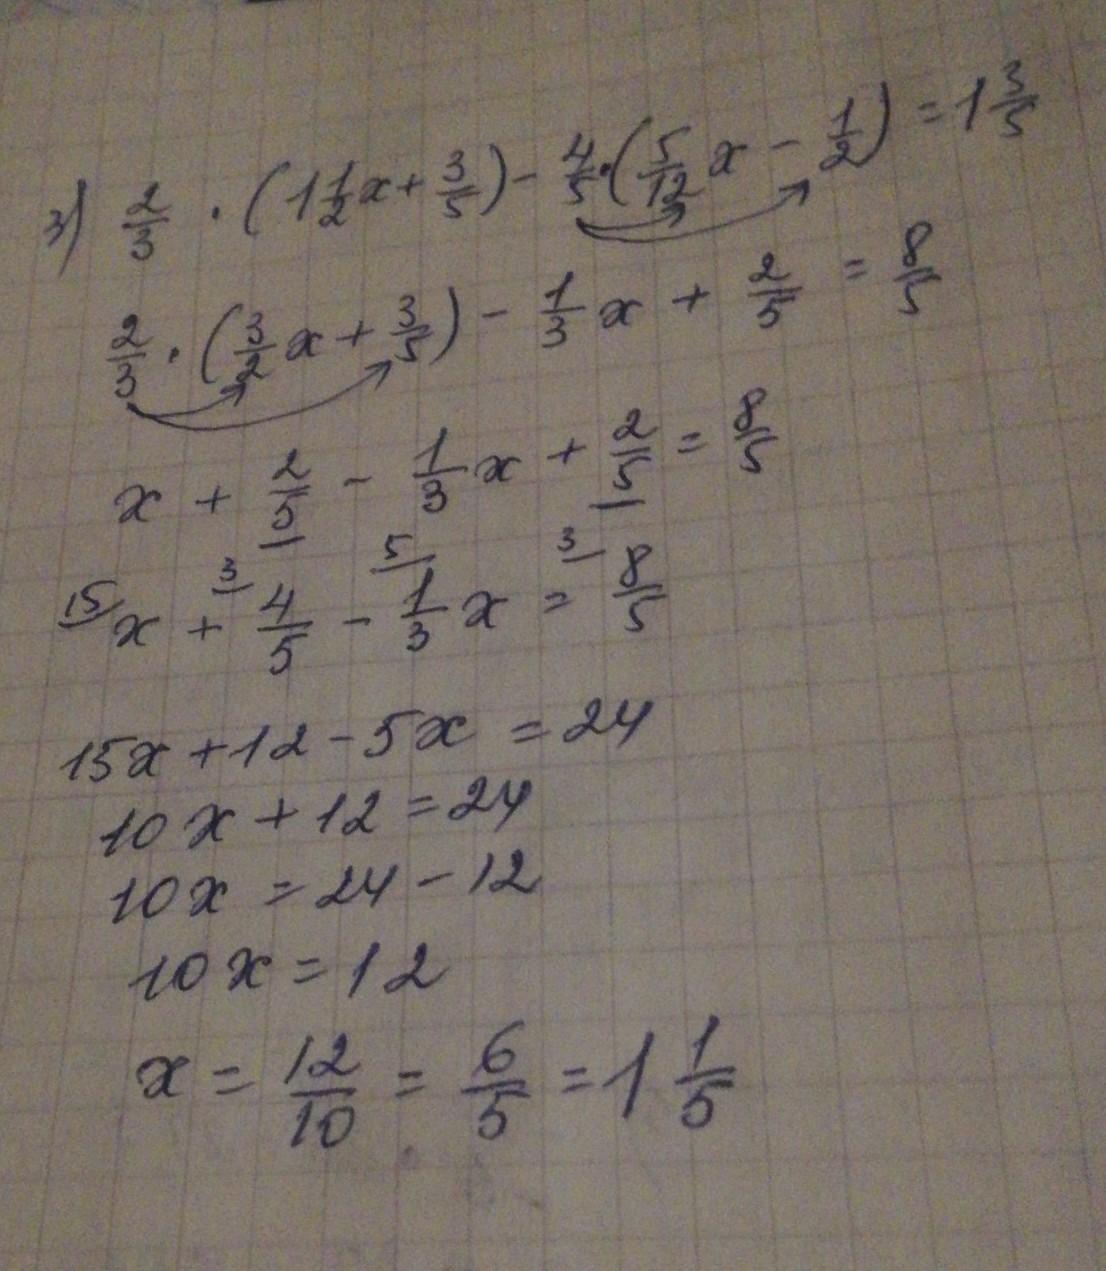 3) 2/3 · (1 1/2 x + 3/5) - 4/5 · (5/12 x - 1/2) = 1 3/5
2/3 · (3/2 x + 3/5) - 1/3 x + 2/5 = 8/5
x + 2/5 - 1/3 x + 2/5 = 8/5
15/ x + 3/ 4/5 - 5/ 1/3 x = 3/ 8/5
15x + 12 - 5x = 24
10x + 12 = 24
10x = 24 - 12
10x = 12
x = 12/10 = 6/5 = 1 1/5